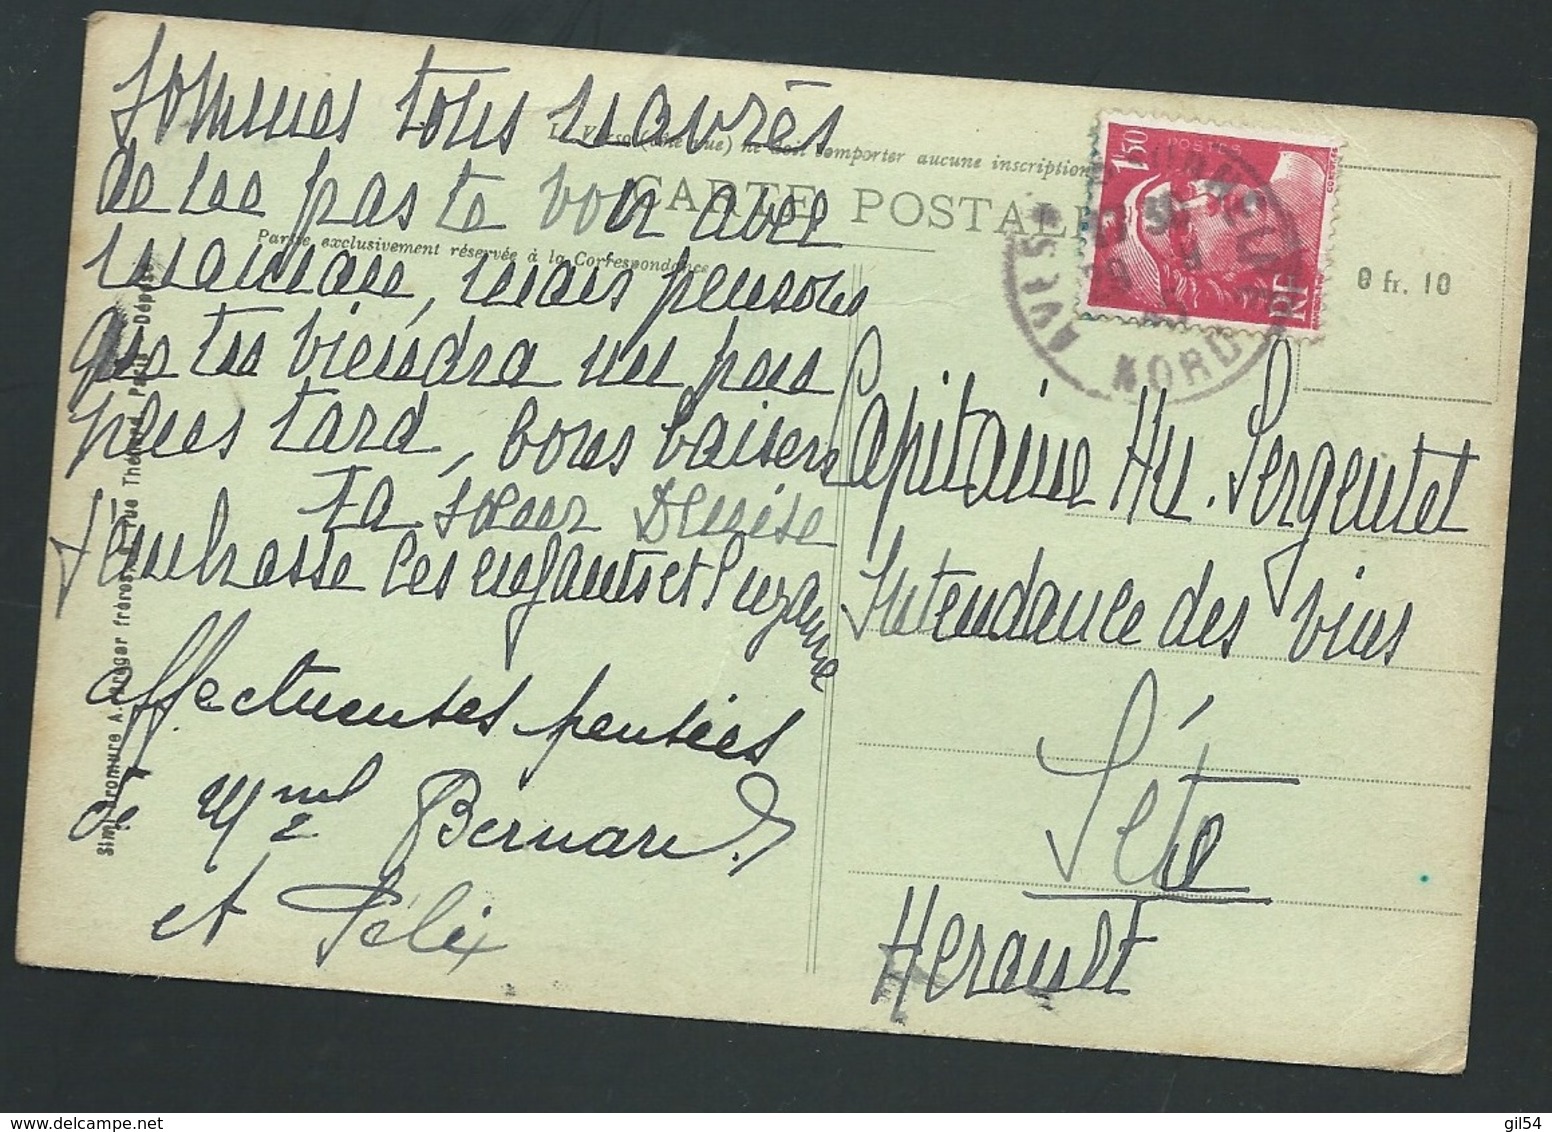 Sommes tous navrés
de ne pas te voir avec
maman, mais pensons
que tu viendra un peu
plus tard, bons baisers
Ta soeur Denise
J'embrasse les enfants et Suzanne
affectueuses pensées
de Mme Bernard
et Félix
Le Verso (côté vue) ne doit comporter aucune inscription
CARTE POSTALE
Partie exclusivement réservée à la Correspondance
Simi-Bromure A. Breger frères, rue Thénard Paris - Déposé
1F50
POSTES
RF
AVESNES
NORD
0 fr. 10
Capitaine Hu. Sergentet
Intendance des vins
Séte
Herault
gil54